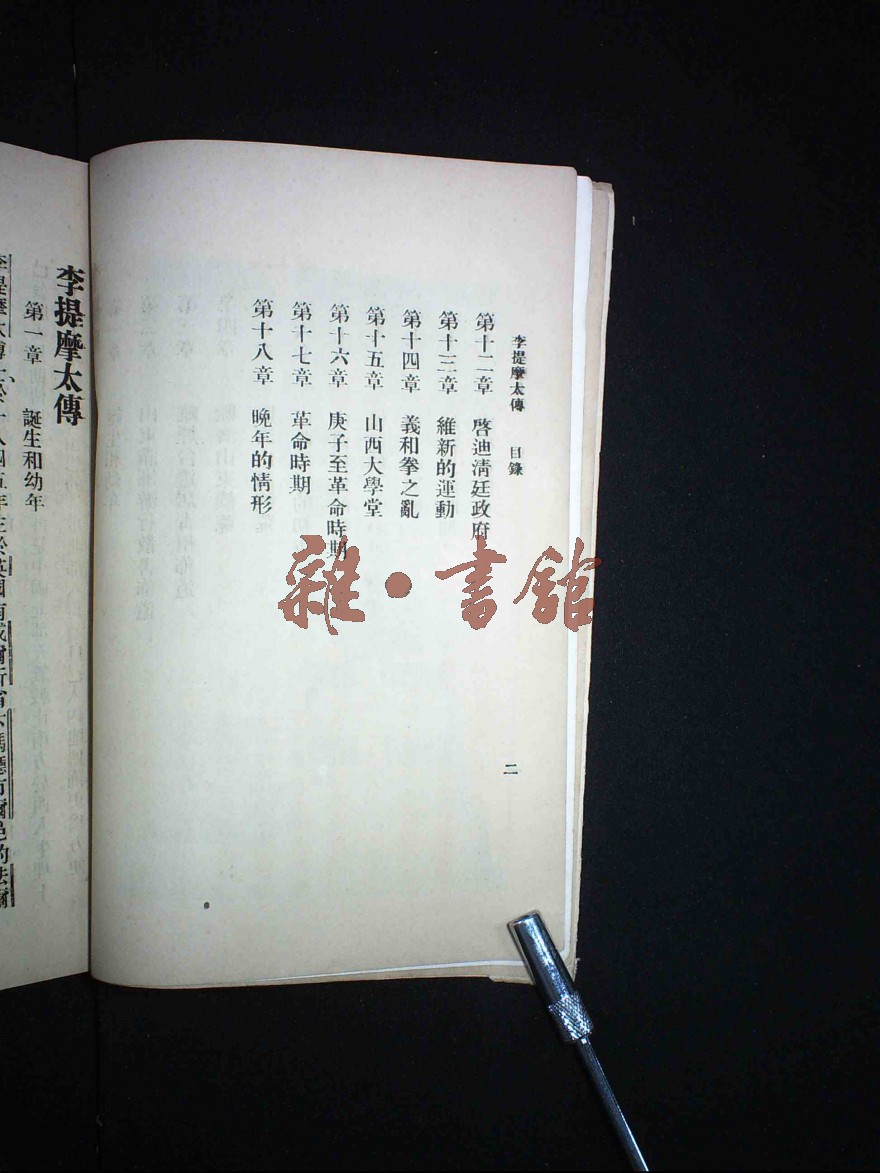 李提摩太傳 目錄 二
第十二章 啓迪淸廷政府
第十三章 維新的運動
第十四章 義和拳之亂
第十五章 山西大學堂
第十六章 庚子至革命時期
第十七章 革命時期
第十八章 晚年的情形
雜·書館
李提摩太傳
第一章 誕生和幼年